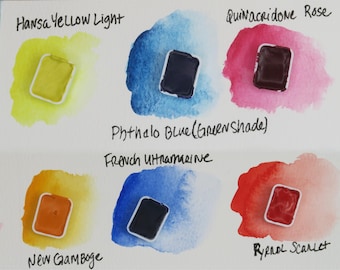 Hansa Yellow Light
Quinacridone Rose
Phthalo Blue (Green Shade)
French Ultramarine
New Gamboge
Pyrrol Scarlet